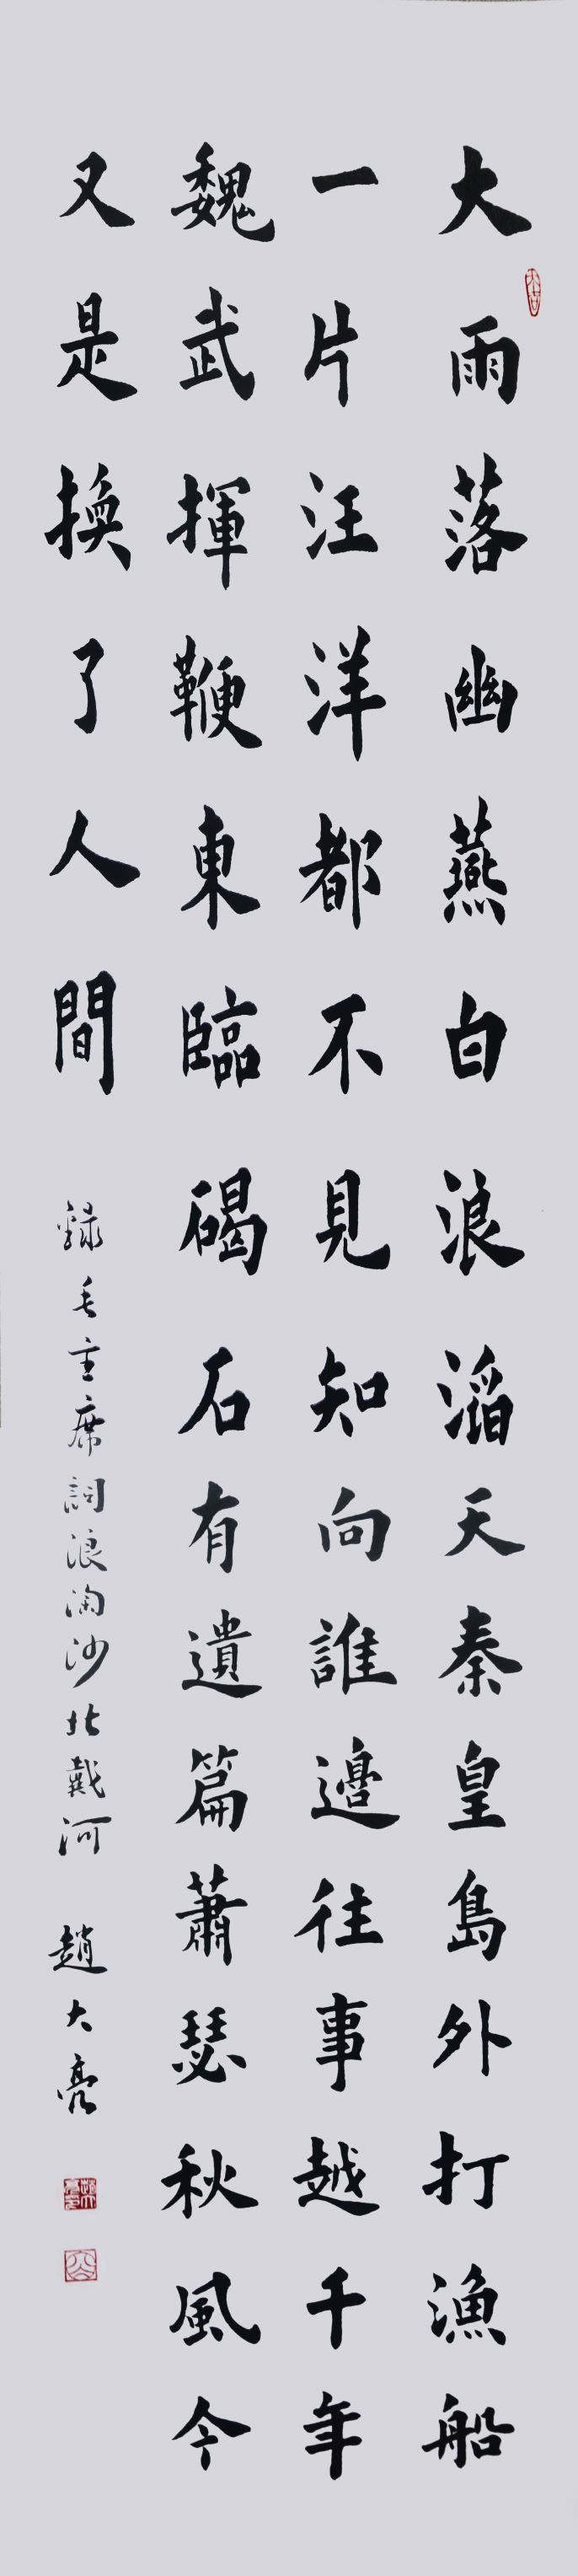 大雨落幽燕白浪滔天秦皇島外打漁船
一片汪洋都不見知向誰邊往事越千年
魏武揮鞭東臨碣石有遺篇蕭瑟秋風今
又是換了人間
錄毛主席詞浪淘沙北戴河 趙大亮